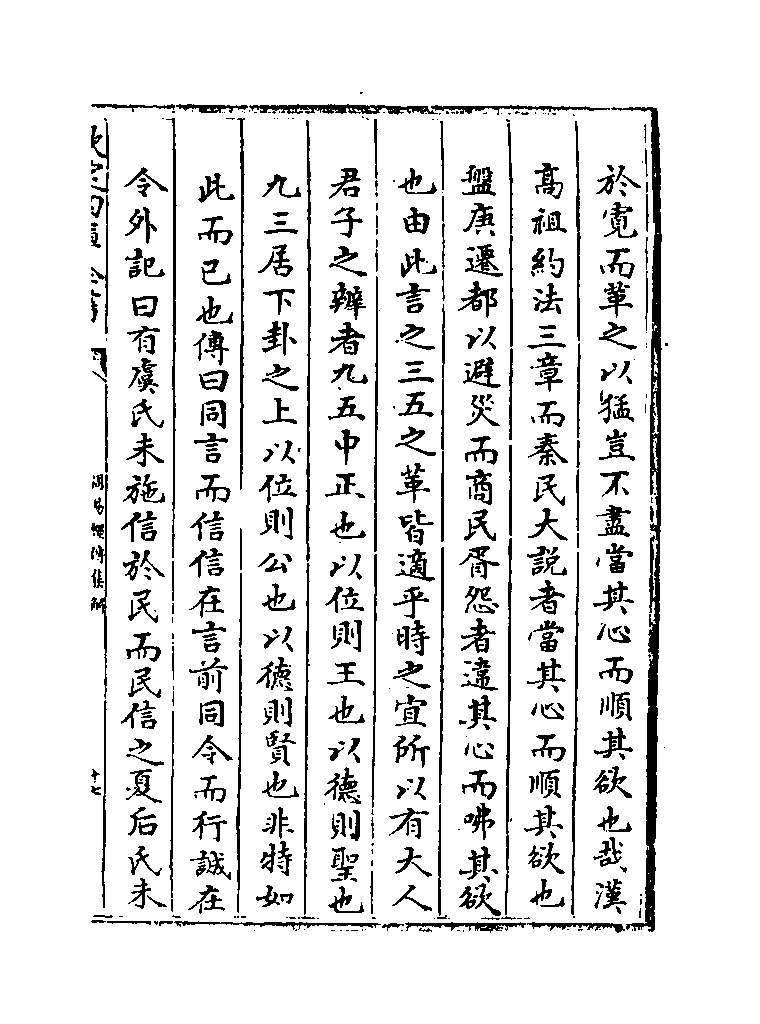 於寛而革之以猛豈不盡當其心而順其欲也哉漢
髙祖約法三章而秦民大說者當其心而順其欲也
盤庚遷都以避災而商民胥怨者違其心而咈其欲
也由此言之三五之革皆適乎時之宜所以有大人
君子之辨者九五中正也以位則王也以德則聖也
九三居下卦之上以位則公也以德則賢也非特如
此而已也傳曰同言而信信在言前同令而行誠在
令外記曰有虞氏未施信於民而民信之夏后氏未
欽定四庫全書
周易經傳集解
十七